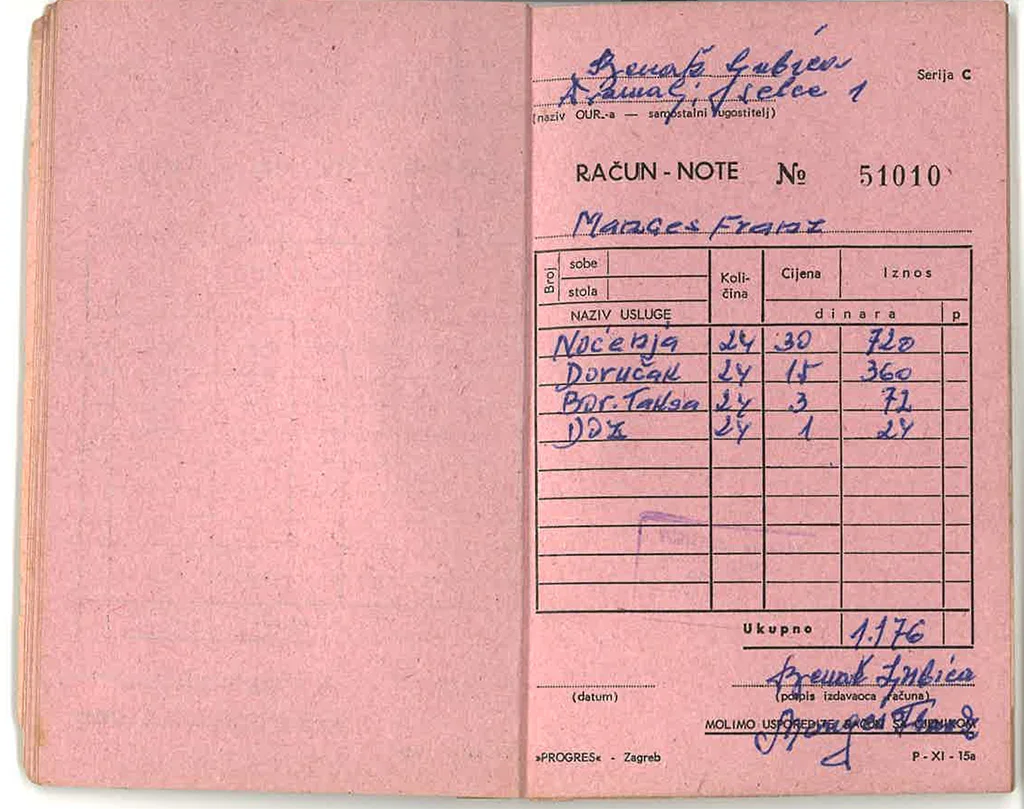 Benak Ljubica
Selce 1
Serija C
(naziv OUR-a — samostalni ugostitelj)
RAČUN - NOTE № 51010
Manges Franz
Broj sobe
stola
Količina Cijena Iznos
NAZIV USLUGE dinara p
Noćenja 24 30 720
Doručak 24 15 360
Bor. Taksa 24 3 72
DDZ 24 1 24
Ukupno 1.176
Benak Ljubica
(datum) (potpis izdavaoca računa)
MOLIMO USPOREDITE RAČUN SA CJENIKOM
Manges Franz
»PROGRES« - Zagreb P - XI - 15a